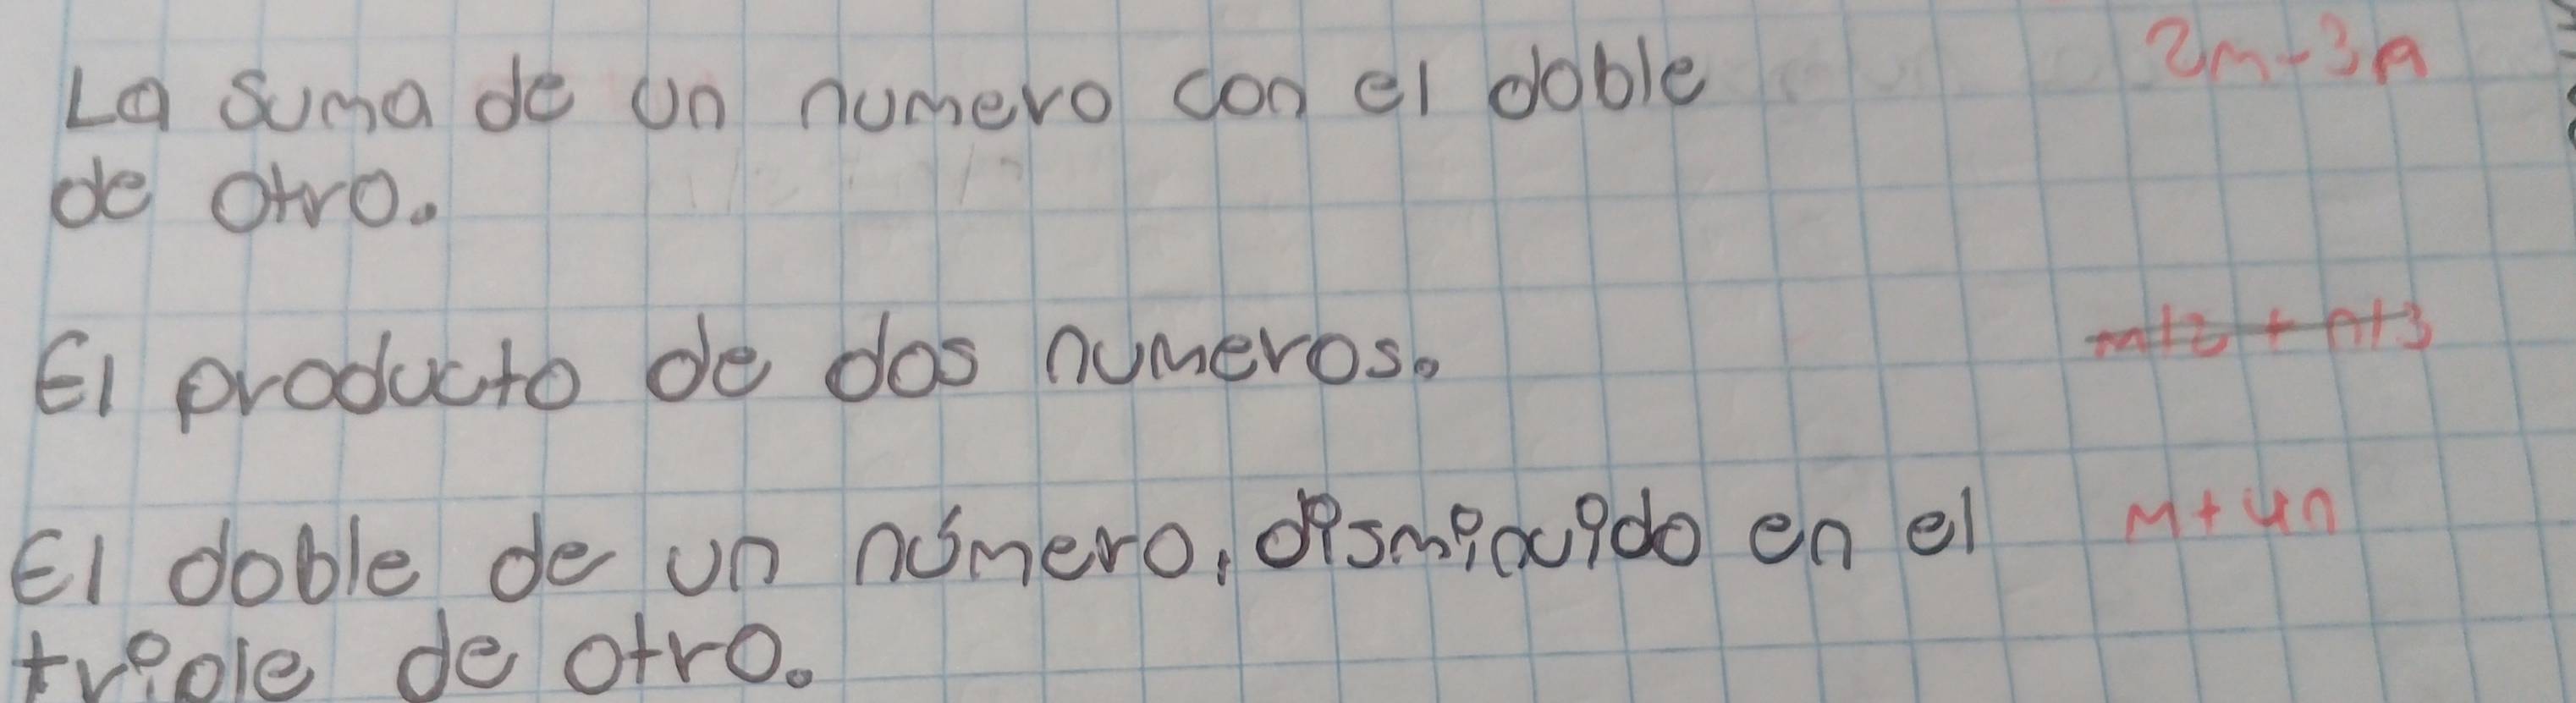 La suma de un numero con el doble 2m-3n
de otro.
El producto de dos numeros. m/2 + n/3
El doble de un número, disminuido en el m+4n
triple de otro.